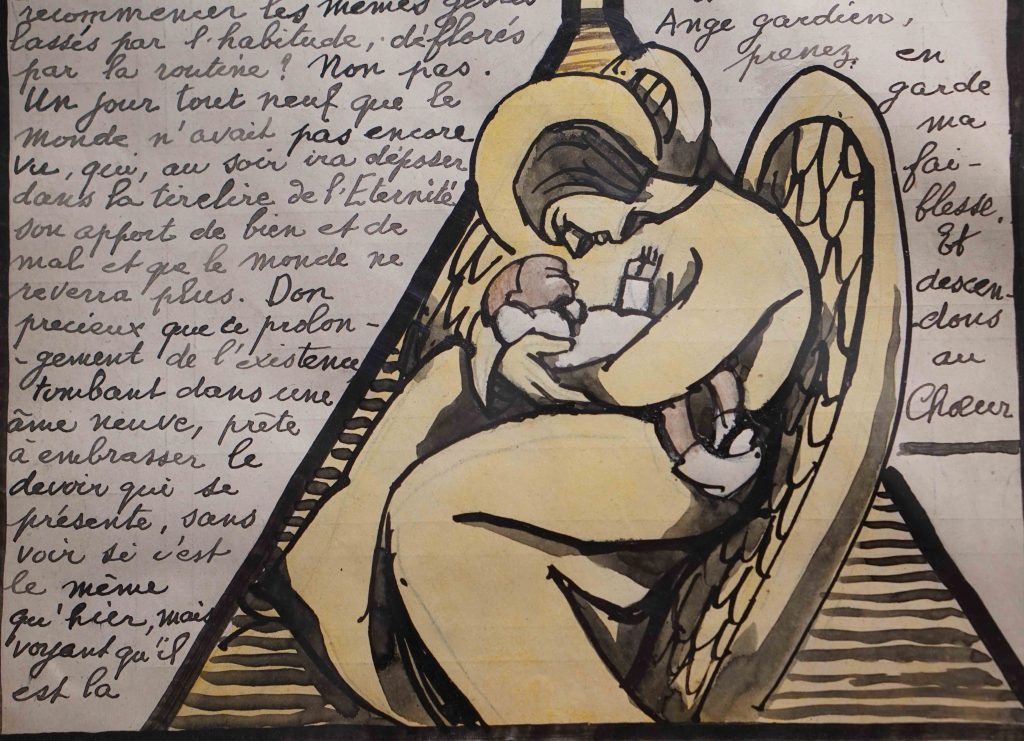 recommencer les mêmes gestes
lassés par l'habitude, déflorés
par la routine ? Non pas.
Un jour tout neuf que le
monde n'avait pas encore
vu, qui, au soir ira déposer
dans la tirelire de l'Eternité
son apport de bien et de
mal et que le monde ne
reverra plus. Don
precieux que ce prolon-
-gement de l'existence
tombant dans une
âme neuve, prête
à embrasser le
devoir qui se
présente, sans
voir si c'est
le même
qu'hier, mais
voyant qu'il
est là
Ange gardien,
prenez en
garde
ma
fai-
blesse.
Et
descen-
-dons
au
Chœur